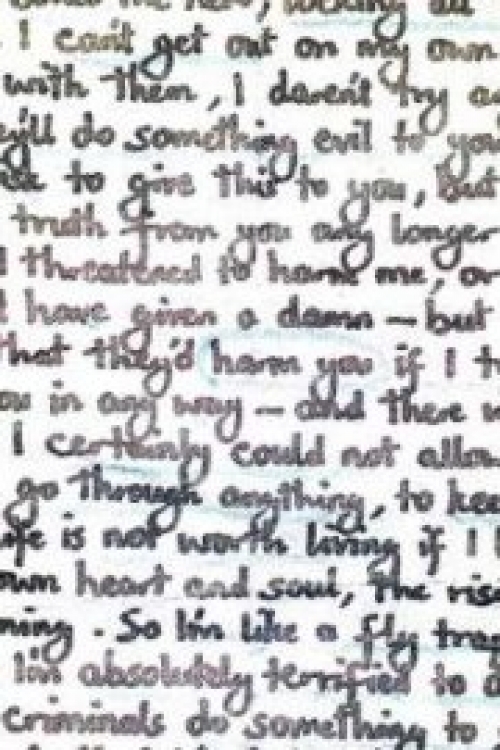 I can't get out on my own
with them, I daren't try
do something evil to you
to give this to you, but
truth from you any longer
threatened to harm me, or
have given a damn – but
that they'd harm you if I
in any way – and there
I certainly could not allow
go through anything, to keep
life is not worth living if I
own heart and soul, the
So I'm like a fly
I'm absolutely terrified to
criminals do something to